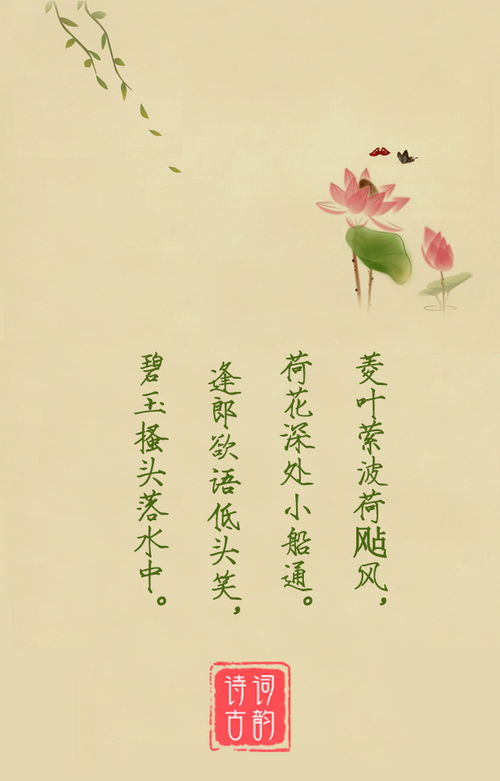 菱叶萦波荷飐风，
荷花深处小船通。
逢郎欲语低头笑，
碧玉搔头落水中。
诗词
古韵